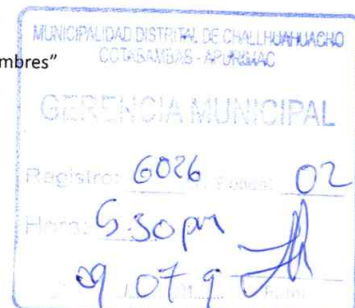 mbres”
MUNICIPALIDAD DISTRITAL DE CHALLHUAHUACHO
COTABAMBAS - APURIMAC
GERENCIA MUNICIPAL
Registro: 6026 02
Hora: 5.30pm
09 07 9